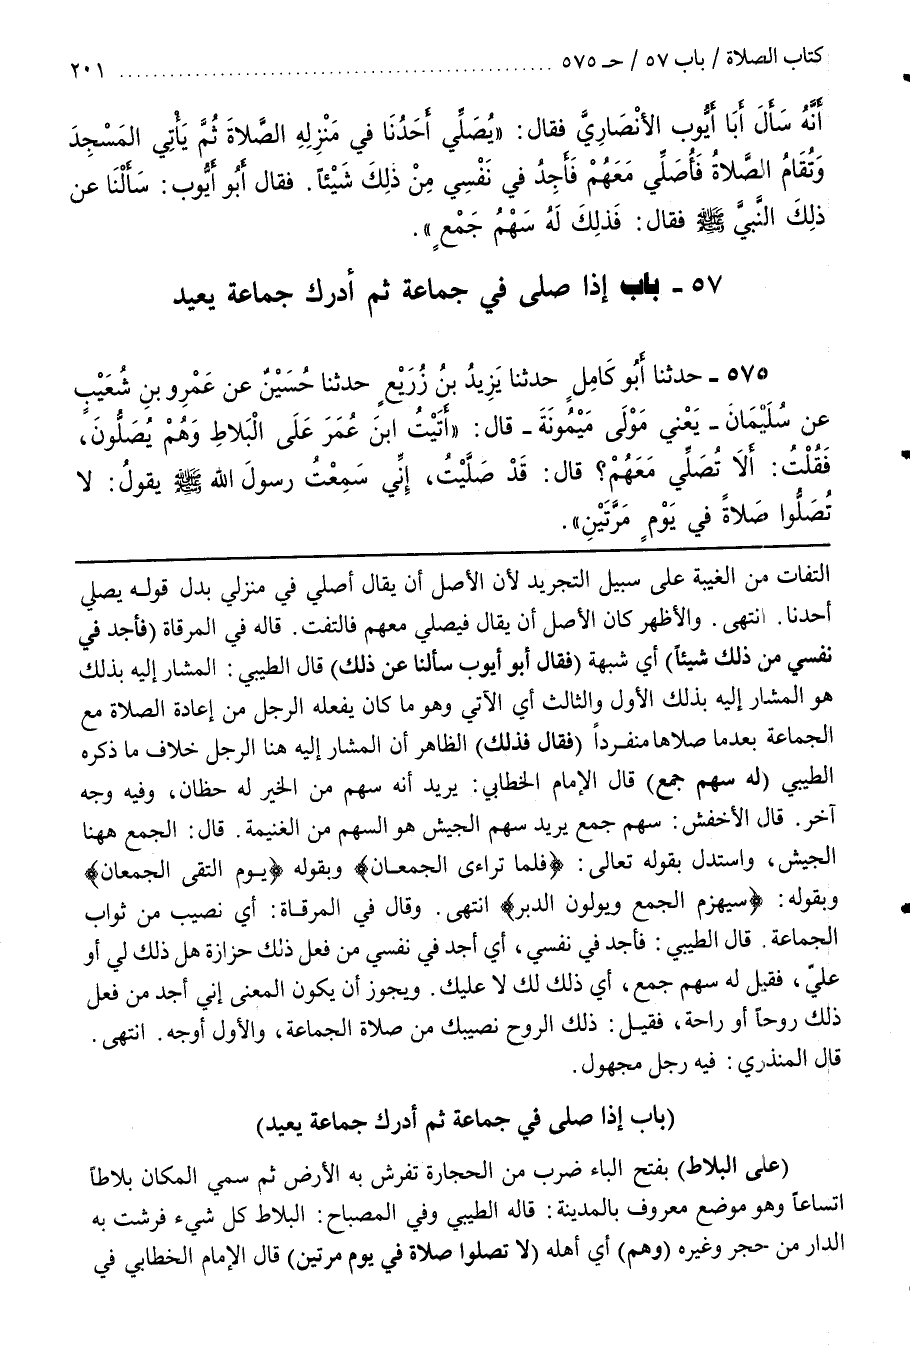 كتاب الصلاة / باب ٥٧ / حـ ٥٧٥ ........................................ ٢٠١
أَنَّهُ سَأَلَ أَبَا أَيُّوب الأنْصَارِيَّ فقال: «يُصَلِّي أَحَدُنَا في مَنْزِلِهِ الصَّلاَةَ ثُمَّ يَأْتِي المَسْجِدَ
وَتُقَامُ الصَّلاةُ فَأُصَلِّي مَعَهُمْ فَأَجِدُ في نَفْسِي مِنْ ذَلِكَ شَيْئاً. فقال أَبُو أَيُّوب: سَأَلْنَا عن
ذلِكَ النَّبيَّ ﷺ فقال: فَذلِكَ لَهُ سَهْمُ جَمْعٍ».
٥٧ ـ باب إذا صلى في جماعة ثم أدرك جماعة يعيد
٥٧٥ ـ حدثنا أَبُو كَامِلٍ حدثنا يَزِيدُ بنُ زُرَيْعٍ حدثنا حُسَيْنٌ عن عَمْرِو بنِ شُعَيْبٍ
عن سُلَيْمَانَ ـ يَعْني مَوْلَى مَيْمُونَةَ ـ قال: «أَتَيْتُ ابنَ عُمَرَ عَلَى الْبَلاطِ وَهُمْ يُصَلُّونَ،
فَقُلْتُ: أَلاَ تُصَلِّي مَعَهُمْ؟ قال: قَدْ صَلَّيْتُ، إِنِّي سَمِعْتُ رسولَ الله ﷺ يقولُ: لا
تُصَلُّوا صَلاَةً في يَوْمٍ مَرَّتَيْنِ».
التفات من الغيبة على سبيل التجريد لأن الأصل أن يقال أصلي في منزلي بدل قوله يصلي
أحدنا. انتهى. والأظهر كان الأصل أن يقال فيصلي معهم فالتفت. قاله في المرقاة (فأجد في
نفسي من ذلك شيئاً) أي شبهة (فقال أبو أيوب سألنا عن ذلك) قال الطيبي: المشار إليه بذلك
هو المشار إليه بذلك الأول والثالث أي الآتي وهو ما كان يفعله الرجل من إعادة الصلاة مع
الجماعة بعدما صلاها منفرداً (فقال فذلك) الظاهر أن المشار إليه هنا الرجل خلاف ما ذكره
الطيبي (له سهم جمع) قال الإمام الخطابي: يريد أنه سهم من الخير له حظان، وفيه وجه
آخر. قال الأخفش: سهم جمع يريد سهم الجيش هو السهم من الغنيمة. قال: الجمع ههنا
الجيش، واستدل بقوله تعالى: ﴿فلما تراءى الجمعان﴾ وبقوله ﴿يوم التقى الجمعان﴾
وبقوله: ﴿سيهزم الجمع ويولون الدبر﴾ انتهى. وقال في المرقاة: أي نصيب من ثواب
الجماعة. قال الطيبي: فأجد في نفسي، أي أجد في نفسي من فعل ذلك حزازة هل ذلك لي أو
عليّ، فقيل له سهم جمع، أي ذلك لك لا عليك. ويجوز أن يكون المعنى إني أجد من فعل
ذلك روحاً أو راحة، فقيل: ذلك الروح نصيبك من صلاة الجماعة، والأول أوجه. انتهى.
قال المنذري: فيه رجل مجهول.
(باب إذا صلى في جماعة ثم أدرك جماعة يعيد)
(على البلاط) بفتح الباء ضرب من الحجارة تفرش به الأرض ثم سمي المكان بلاطاً
اتساعاً وهو موضع معروف بالمدينة: قاله الطيبي وفي المصباح: البلاط كل شيء فرشت به
الدار من حجر وغيره (وهم) أي أهله (لا تصلوا صلاة في يوم مرتين) قال الإمام الخطابي في